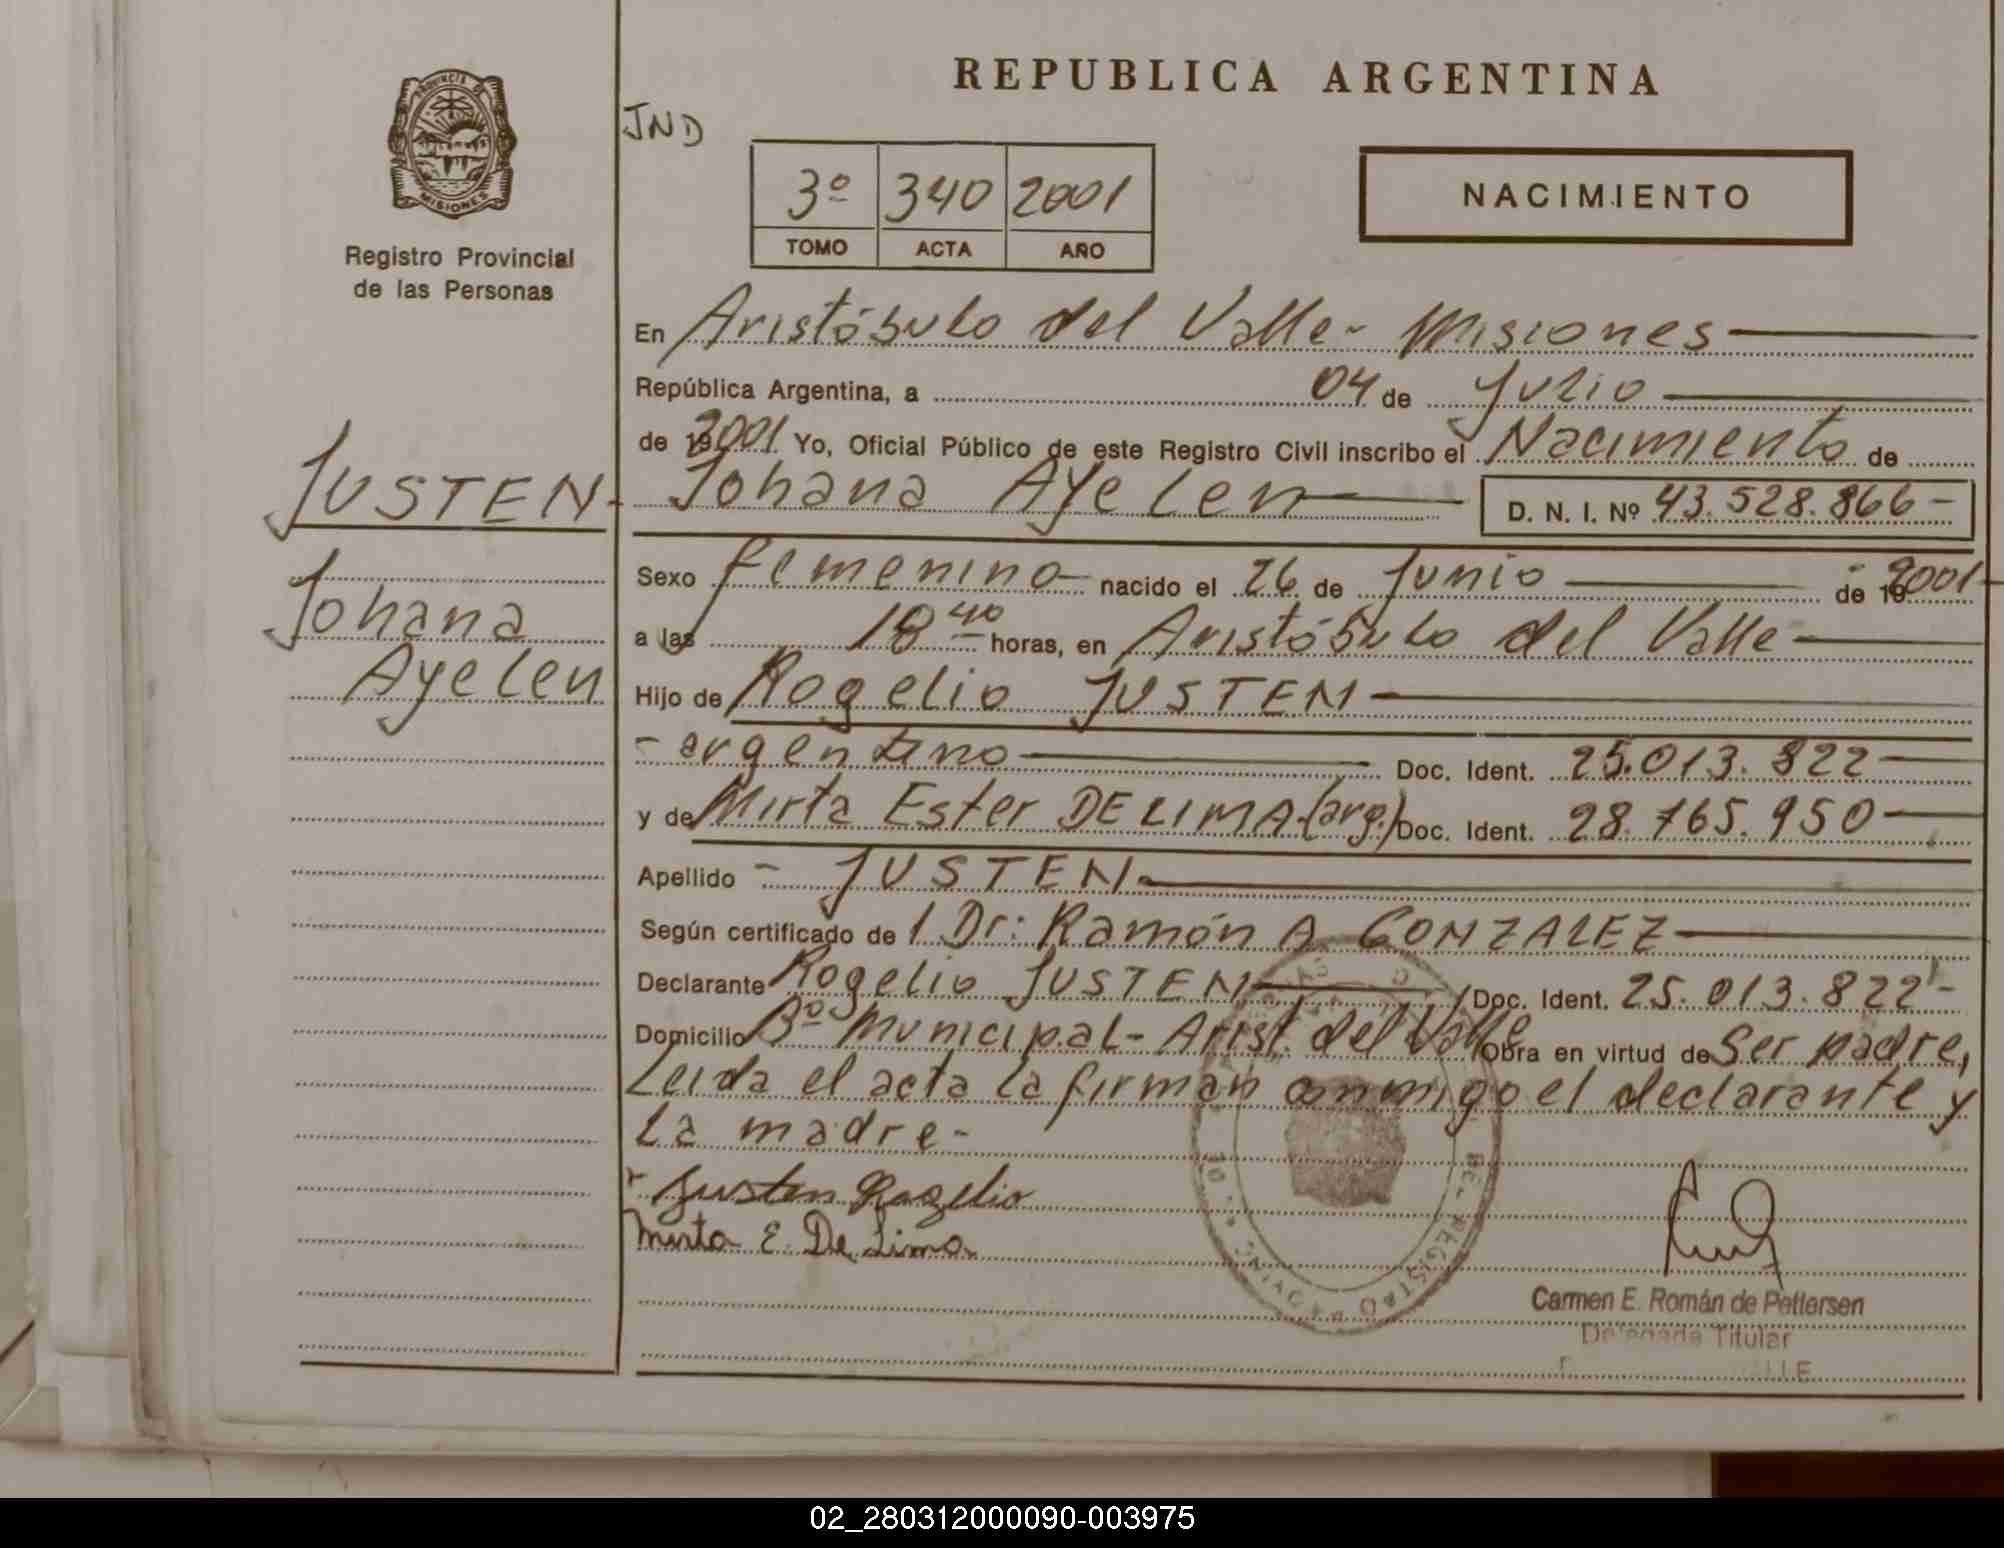 PROVINCIA DE
MISIONES
Registro Provincial
de las Personas
JUSTEN-
Johana
Ayelen
REPUBLICA ARGENTINA
JND
3º 340 2001
TOMO ACTA AÑO
NACIMIENTO
En Aristóbulo del Valle- Misiones
República Argentina, a 04 de Julio
de 2001 Yo, Oficial Público de este Registro Civil inscribo el Nacimiento de
Johana Ayelen D. N. I. Nº 43.528.866-
Sexo femenino nacido el 26 de Junio de 2001-
a las 18 40 horas, en Aristóbulo del Valle
Hijo de Rogelio JUSTEN
- argentino Doc. Ident. 25.013.822
y de Mirta Ester DE LIMA (arg.) Doc. Ident. 28.765.950
Apellido - JUSTEN
Según certificado de l Dr: Ramón A GONZALEZ
Declarante Rogelio JUSTEN Doc. Ident. 25.013.822-
Domicilio Bº Municipal- Arist. del Valle Obra en virtud de Ser padre,
Leida el acta la firman conmigo el declarante y
La madre-
Justen Rogelio
Mirta E. De Lima
REGISTRO PROVINC
Carmen E. Román de Pettersen
Delegada Titular
02_280312000090-003975